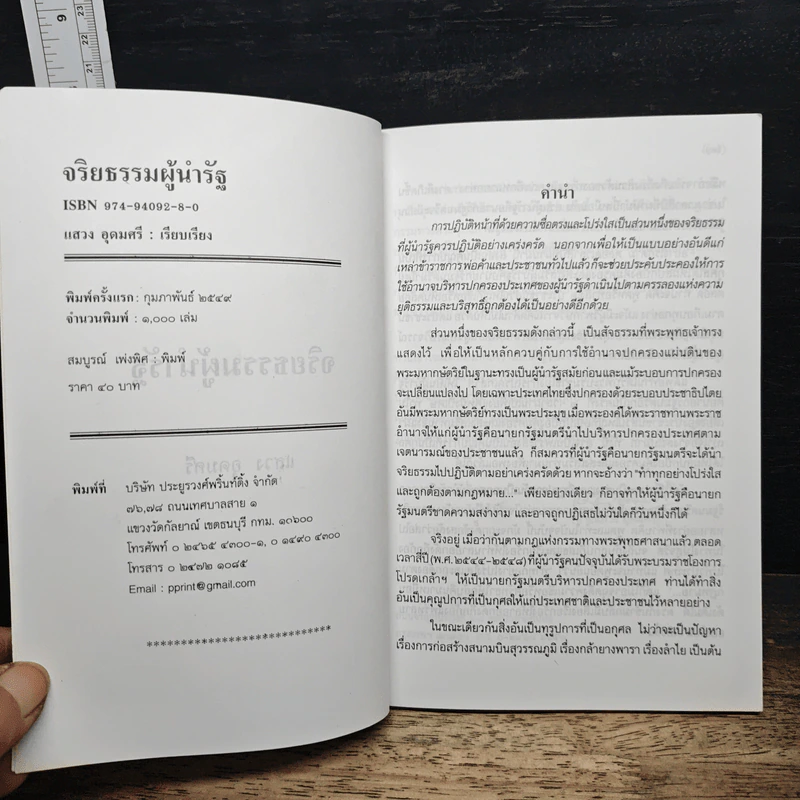 จริยธรรมผู้นำรัฐ
ISBN 974-94092-8-0
แสวง อุดมศรี : เรียบเรียง
พิมพ์ครั้งแรก : กุมภาพันธ์ ๒๕๔๙
จำนวนพิมพ์ : ๑,๐๐๐ เล่ม
สมบูรณ์ เพ่งพิศ : พิมพ์
ราคา ๔๐ บาท
พิมพ์ที่ บริษัท ประยูรวงศ์พริ้นท์ติ้ง จำกัด
๗๖,๗๘ ถนนเทศบาลสาย ๑
แขวงวัดกัลยาณ์ เขตธนบุรี กทม. ๑๐๖๐๐
โทรศัพท์ ๐ ๒๔๖๕ ๔๓๐๐-๑, ๐ ๑๔๙๐ ๔๓๐๐
โทรสาร ๐ ๒๔๗๒ ๑๐๘๕
Email : pprint@gmail.com
****************************
คำนำ
การปฏิบัติหน้าที่ด้วยความซื่อตรงและโปร่งใสเป็นส่วนหนึ่งของจริยธรรม
ที่ผู้นำรัฐควรปฏิบัติอย่างเคร่งครัด นอกจากเพื่อให้เป็นแบบอย่างอันดีแก่
เหล่าข้าราชการ พ่อค้าและประชาชนทั่วไปแล้ว ก็จะช่วยประคับประคองให้การ
ใช้อำนาจบริหารปกครองประเทศของผู้นำรัฐดำเนินไปตามครรลองแห่งความ
ยุติธรรมและบริสุทธิ์ถูกต้องได้เป็นอย่างดีอีกด้วย
ส่วนหนึ่งของจริยธรรมดังกล่าวนี้ เป็นสัจธรรมที่พระพุทธเจ้าทรง
แสดงไว้ เพื่อให้เป็นหลักควบคู่กับการใช้อำนาจปกครองแผ่นดินของ
พระมหากษัตริย์ในฐานะทรงเป็นผู้นำรัฐสมัยก่อนและแม้ระบอบการปกครอง
จะเปลี่ยนแปลงไป โดยเฉพาะประเทศไทยซึ่งปกครองด้วยระบอบประชาธิปไตย
อันมีพระมหากษัตริย์ทรงเป็นพระประมุข เมื่อพระองค์ได้พระราชทานพระราช
อำนาจให้แก่ผู้นำรัฐคือนายกรัฐมนตรีนำไปบริหารปกครองประเทศตาม
เจตนารมณ์ของประชาชนแล้ว ก็สมควรที่ผู้นำรัฐคือนายกรัฐมนตรีจะได้นำ
จริยธรรมไปปฏิบัติตามอย่าเคร่งครัดด้วย หากจะอ้างว่า "ทำทุกอย่างโปร่งใส
และถูกต้องตามกฎหมาย..." เพียงอย่างเดียว ก็อาจทำให้ผู้นำรัฐคือนายก
รัฐมนตรีขาดความสง่างาม และอาจถูกปฏิเสธไม่วันใดก็วันหนึ่งก็ได้
จริงอยู่ เมื่อว่ากันตามกฎแห่งกรรมทางพระพุทธศาสนาแล้ว ตลอด
เวลาสี่ปี (พ.ศ. ๒๕๔๔-๒๕๔๘) ที่ผู้นำรัฐคนปัจจุบันได้รับพระบรมราชโองการ
โปรดเกล้าฯ ให้เป็นนายกรัฐมนตรีบริหารปกครองประเทศ ท่านได้ทำสิ่ง
อันเป็นคุณูปการที่เป็นกุศลให้แก่ประเทศชาติและประชาชนไว้หลายอย่าง
ในขณะเดียวกันสิ่งอันเป็นทุรูปการที่เป็นอกุศล ไม่ว่าจะเป็นปัญหา
เรื่องการก่อสร้างสนามบินสุวรรณภูมิ เรื่องกล้ายางพารา เรื่องลำไย เป็นต้น